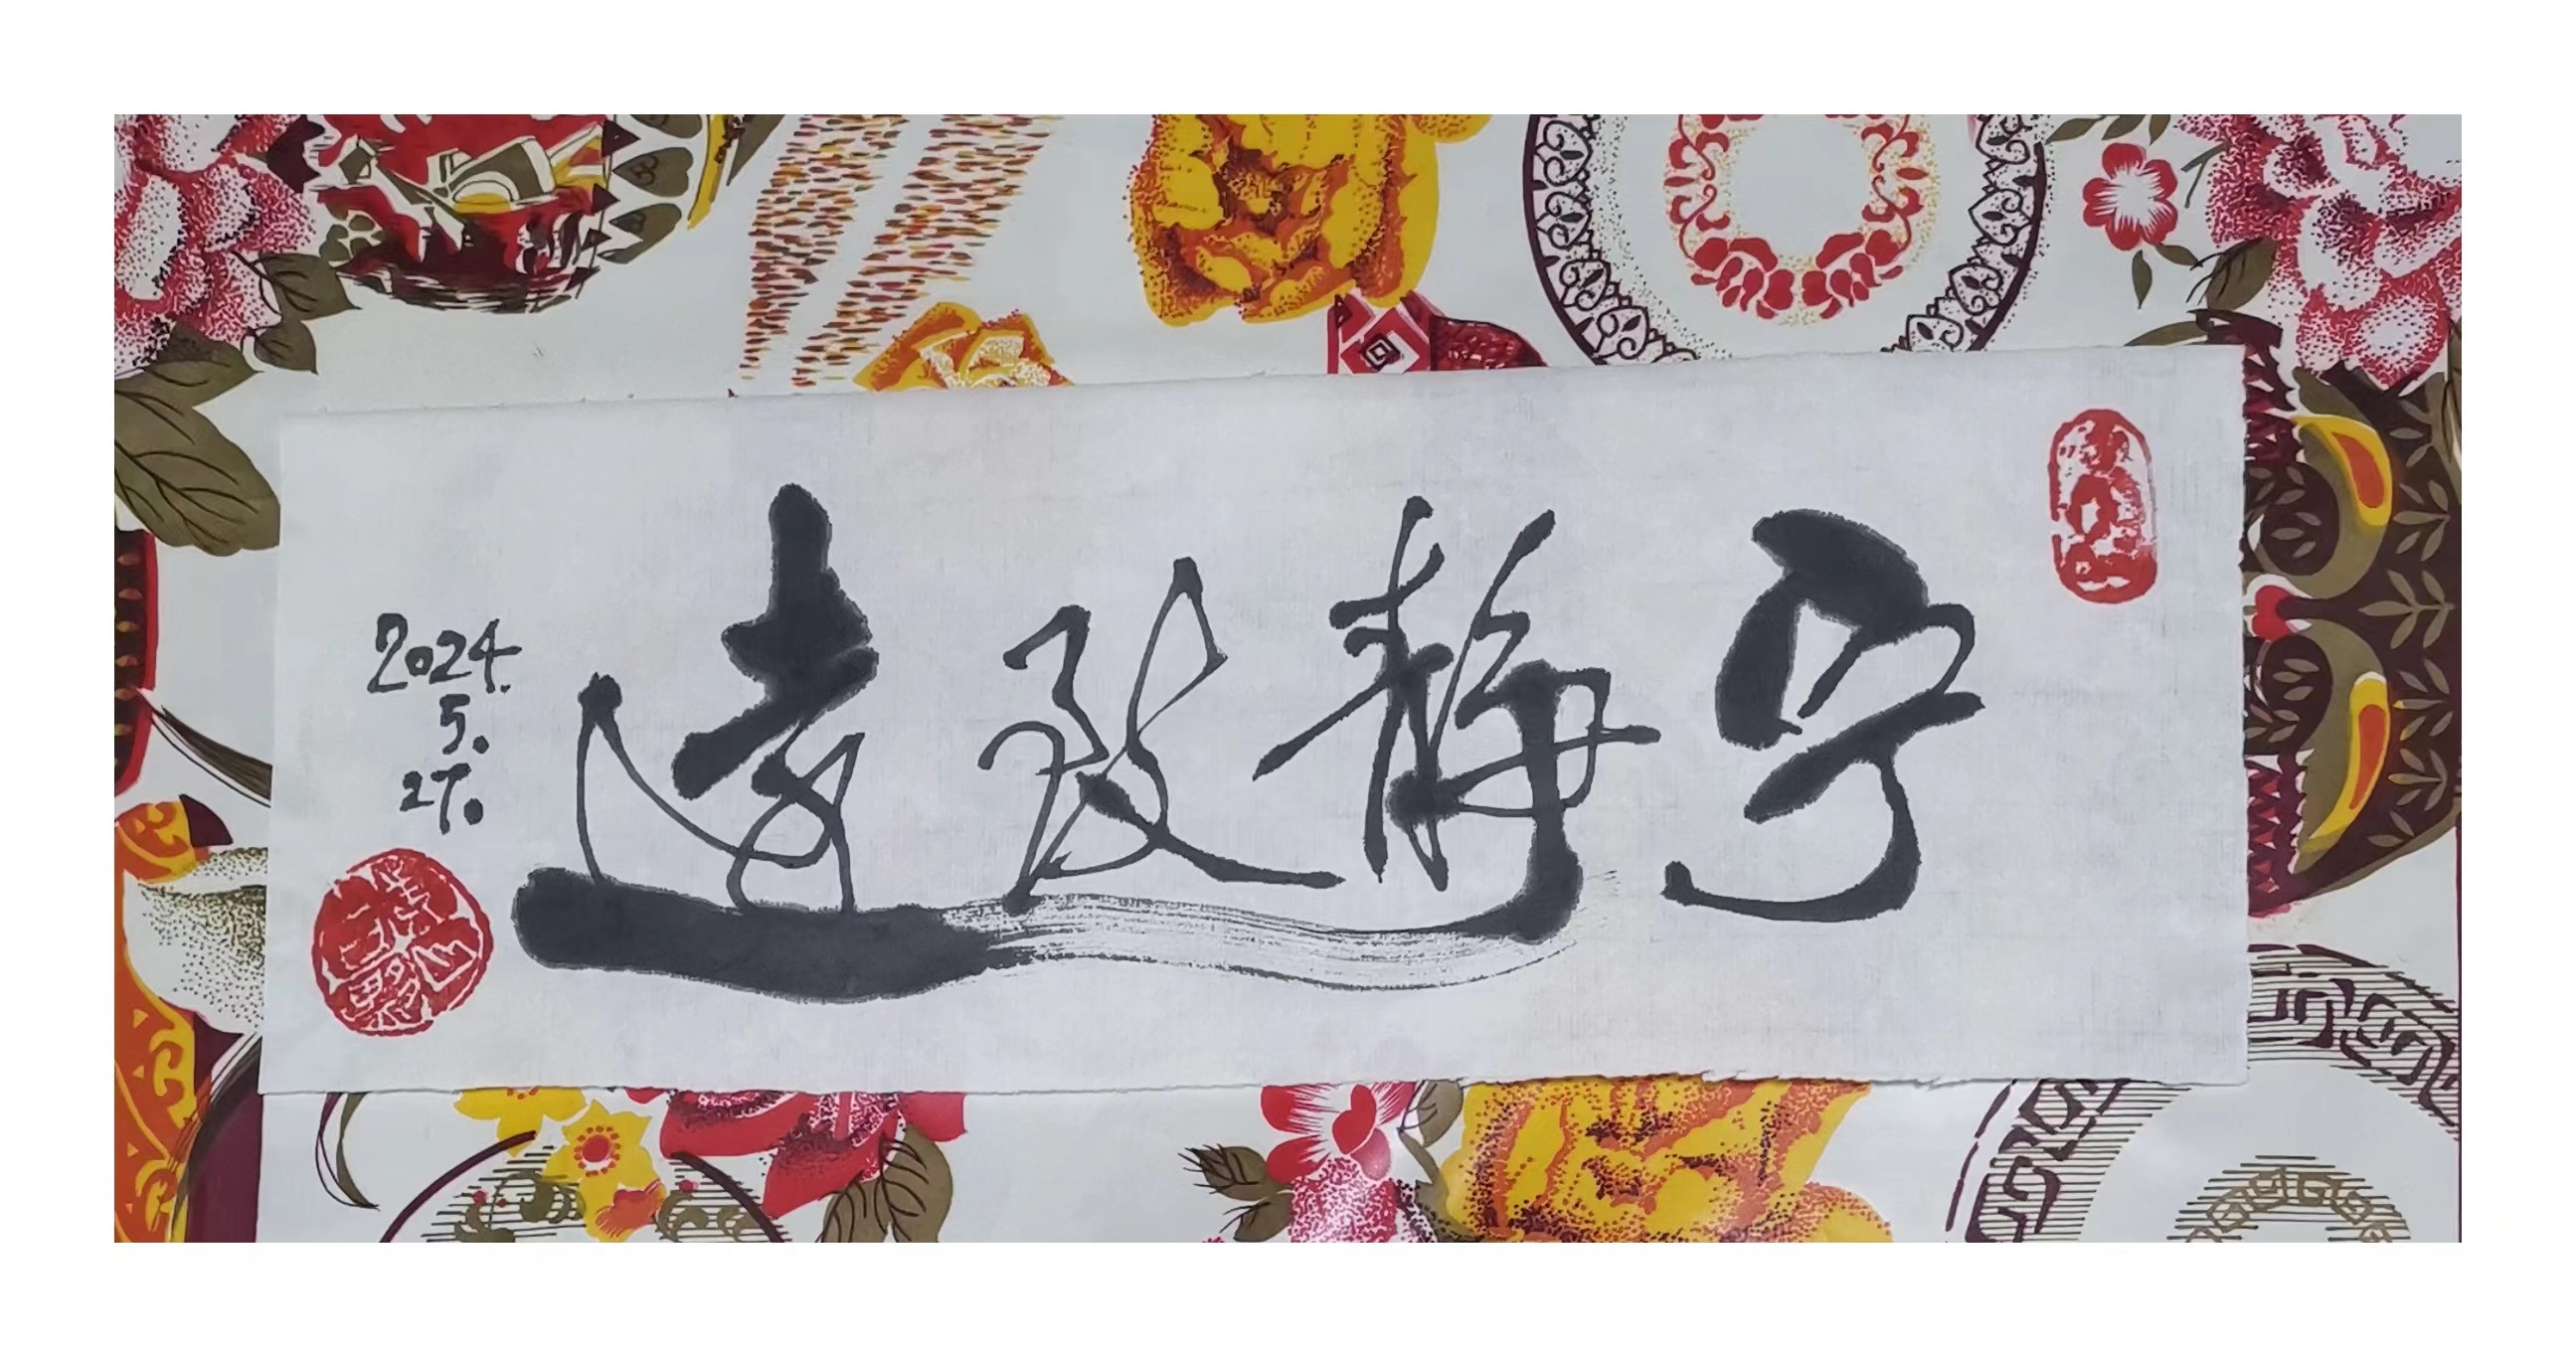 宁静致远
2024.
5.
27.